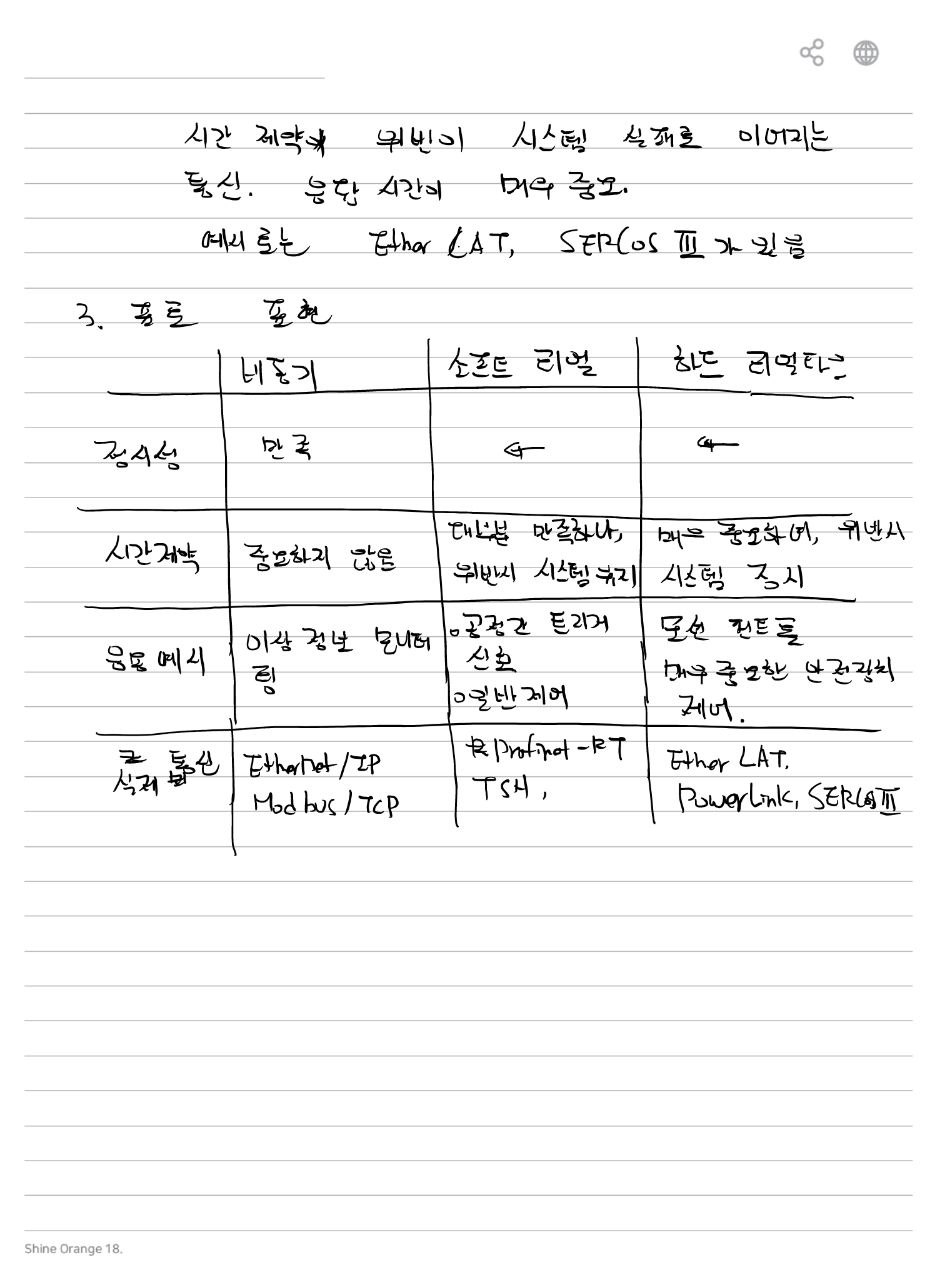 시간 제약의 위반이 시스템 실패로 이어지는
통신. 응답 시간이 매우 중요.
예시로는 Ether CAT, SERCOS III가 있음
3. 표로 표현
비동기 소프트 리얼 하드 리얼타임
정시성 만족 ← ←
시간제약 중요하지 않음 대부분 만족하나, 위반시 시스템 유지 매우 중요하며, 위반시 시스템 중지
응용 예시 이상 정보 모니터링 ○공정간 트리거 신호 ○일반제어 모션 컨트롤 매우 중요한 안전장치 제어.
실제 통신 Ethernet/IP Modbus/TCP Profinet-RT TSN, Ether CAT. PowerLink, SERCOS III
Shine Orange 18.